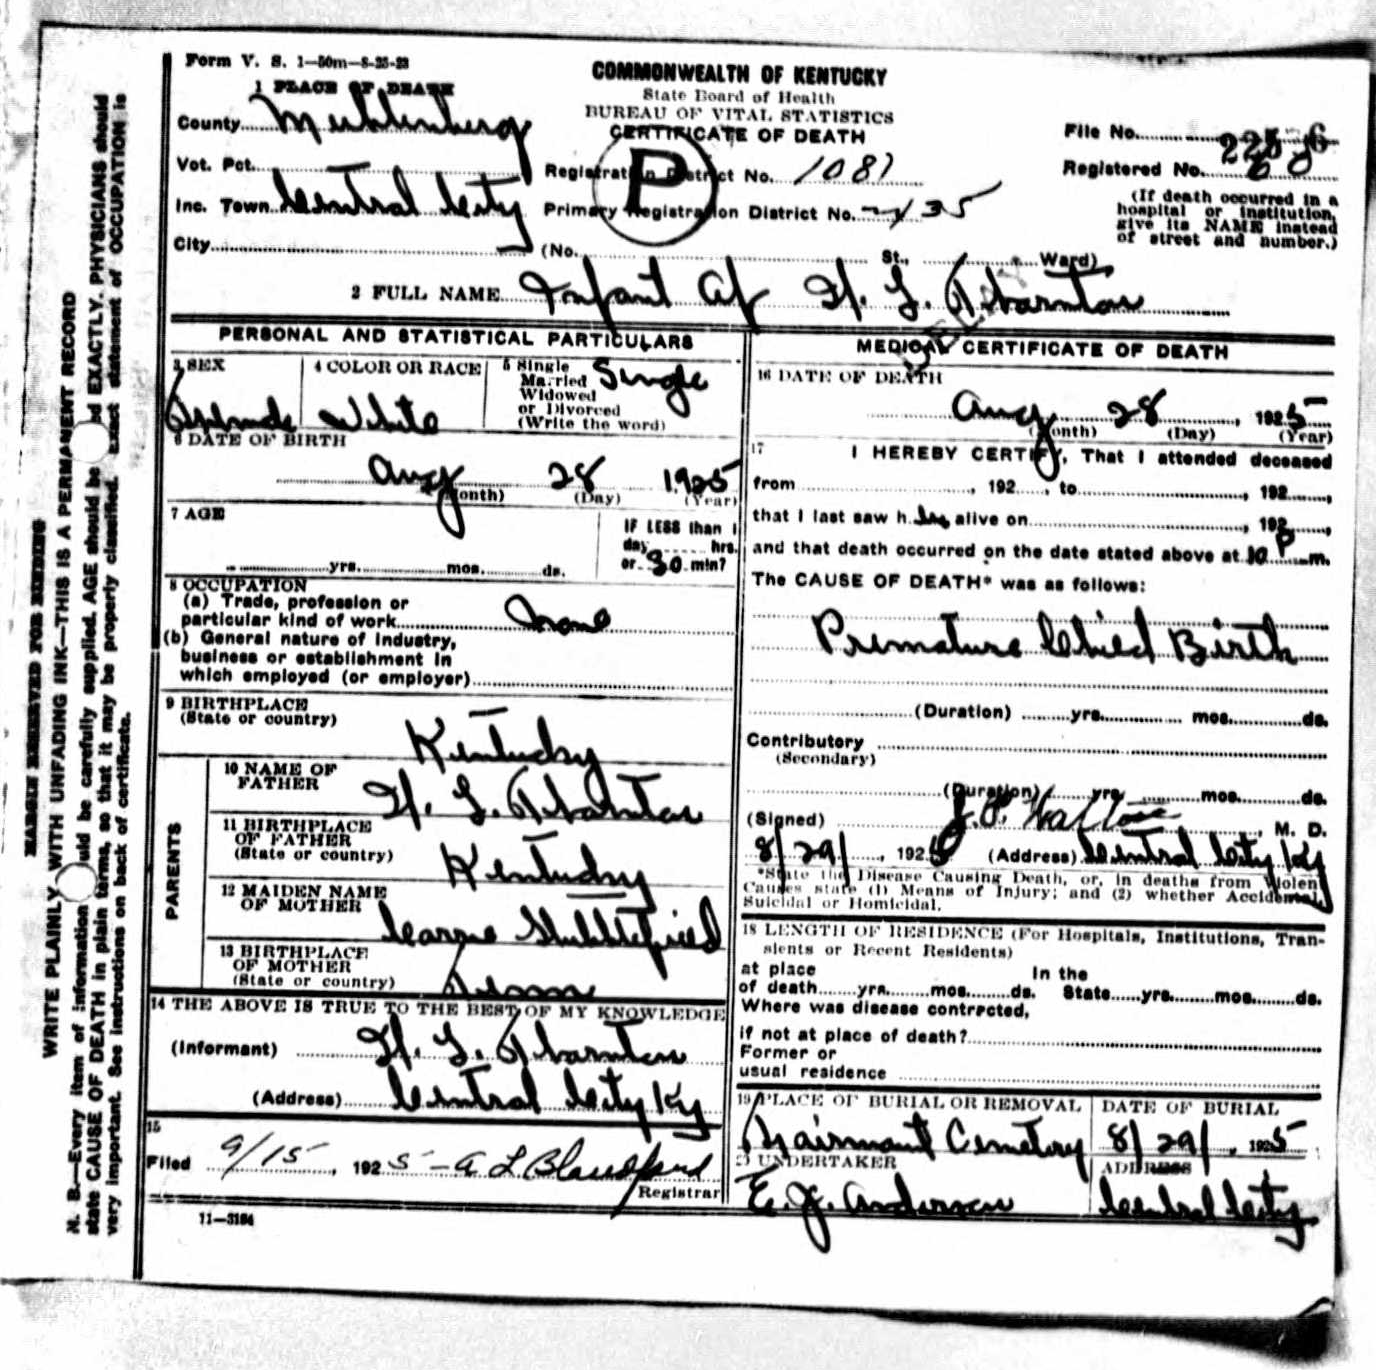 Form V. S. 1—50m—8-25-23
COMMONWEALTH OF KENTUCKY
State Board of Health
BUREAU OF VITAL STATISTICS
CERTIFICATE OF DEATH
1 PLACE OF DEATH
County Muhlenberg
Vot. Pct.
Inc. Town Central City
City
P
Registration District No. 1081
Primary Registration District No. 35
(No. St., Ward)
File No.
Registered No.
(If death occurred in a
hospital or institution,
give its NAME instead
of street and number.)
2 FULL NAME Infant of H. L. Tharnton
PERSONAL AND STATISTICAL PARTICULARS
3 SEX
4 COLOR OR RACE White
5 Single
Married
Widowed
or Divorced
(Write the word)
Single
6 DATE OF BIRTH
Aug 28 1925
(Month) (Day) (Year)
7 AGE
yrs. mos. ds.
IF LESS than 1
day hrs.
or 30 min?
8 OCCUPATION
(a) Trade, profession or
particular kind of work None
(b) General nature of Industry,
business or establishment in
which employed (or employer)
9 BIRTHPLACE
(State or country)
Kentucky
PARENTS
10 NAME OF
FATHER
H. L. Tharnton
11 BIRTHPLACE
OF FATHER
(State or country)
Kentucky
12 MAIDEN NAME
OF MOTHER
Stubblefield
13 BIRTHPLACE
OF MOTHER
(State or country)
Tenn
14 THE ABOVE IS TRUE TO THE BEST OF MY KNOWLEDGE
(Informant) H. L. Tharnton
(Address) Central City Ky
15
Filed 9/15, 1925 A L Blandford
Registrar
11—3184
MEDICAL CERTIFICATE OF DEATH
16 DATE OF DEATH
Aug 28, 1925
(Month) (Day) (Year)
17 I HEREBY CERTIFY, That I attended deceased
from , 192 , to , 192 ,
that I last saw h alive on , 192 ,
and that death occurred on the date stated above at 10 P m.
The CAUSE OF DEATH* was as follows:
Premature Child Birth
(Duration) yrs. mos. ds.
Contributory
(Secondary)
(Duration) yrs. mos. ds.
(Signed) , M. D.
8/29/, 1925 (Address) Central City Ky
*State the Disease Causing Death, or, in deaths from Violent
Causes state (1) Means of Injury; and (2) whether Accidental,
Suicidal or Homicidal.
18 LENGTH OF RESIDENCE (For Hospitals, Institutions, Tran-
sients or Recent Residents)
at place In the
of death yrs. mos. ds. State yrs. mos. ds.
Where was disease contracted,
if not at place of death?
Former or
usual residence
19 PLACE OF BURIAL OR REMOVAL
Fairmount Cemetery
DATE OF BURIAL
8/29/, 1925
20 UNDERTAKER
E. J. Anderson
ADDRESS
Central City
MARGIN RESERVED FOR BINDING
WRITE PLAINLY WITH UNFADING INK—THIS IS A PERMANENT RECORD
N. B.—Every item of information should be carefully supplied. AGE should be stated EXACTLY. PHYSICIANS should
state CAUSE OF DEATH in plain terms, so that it may be properly classified. Exact statement of OCCUPATION is
very important. See instructions on back of certificate.